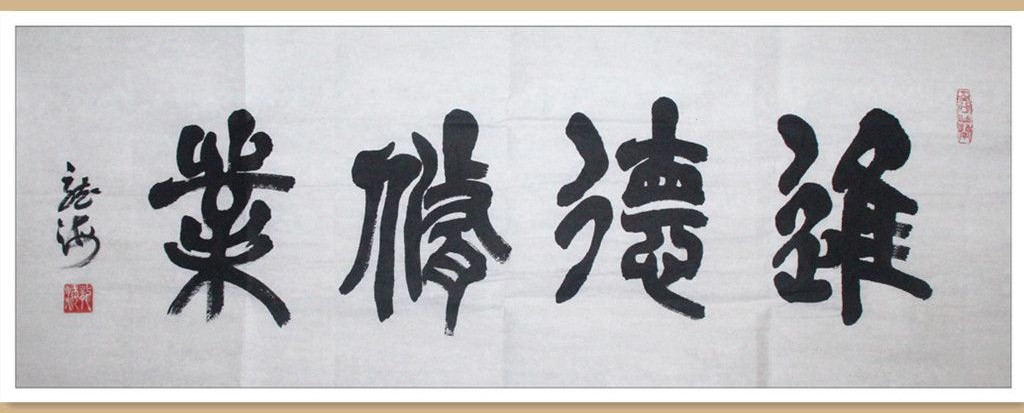 進德脩業
龍海